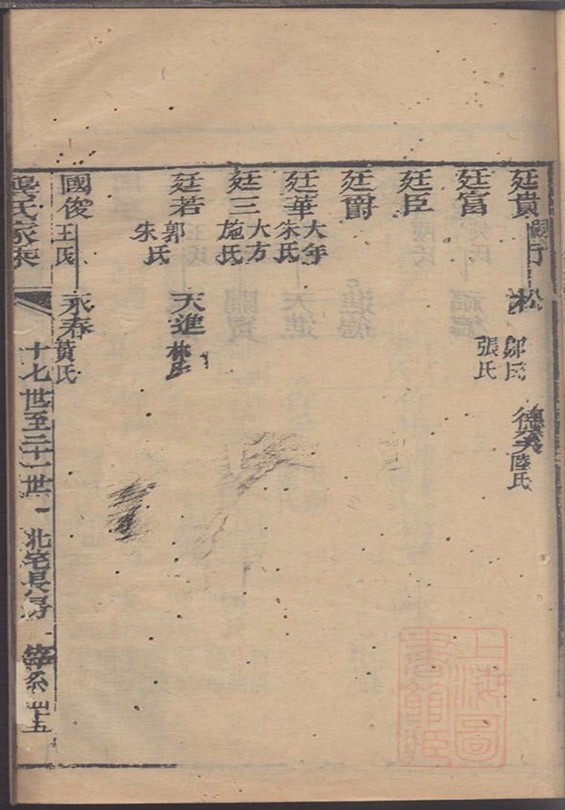 廷貴
松 鄒氏
張氏
德榮 陸氏
廷富
廷臣
廷爵
廷華 大年
朱氏
廷三 大方
施氏
廷若 郭氏
朱氏
天進 林氏
國俊 王氏
永春 黃氏
氏家乘
十七世至二十一世
北宅長房
系四十五
上海圖書館藏